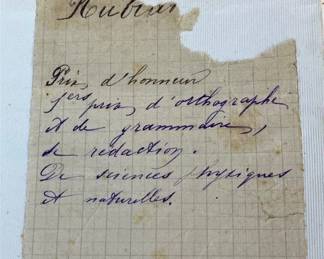 Prix d'honneur
1ers prix d'orthographe
et de grammaire,
de rédaction.
De sciences physiques
et naturelles.